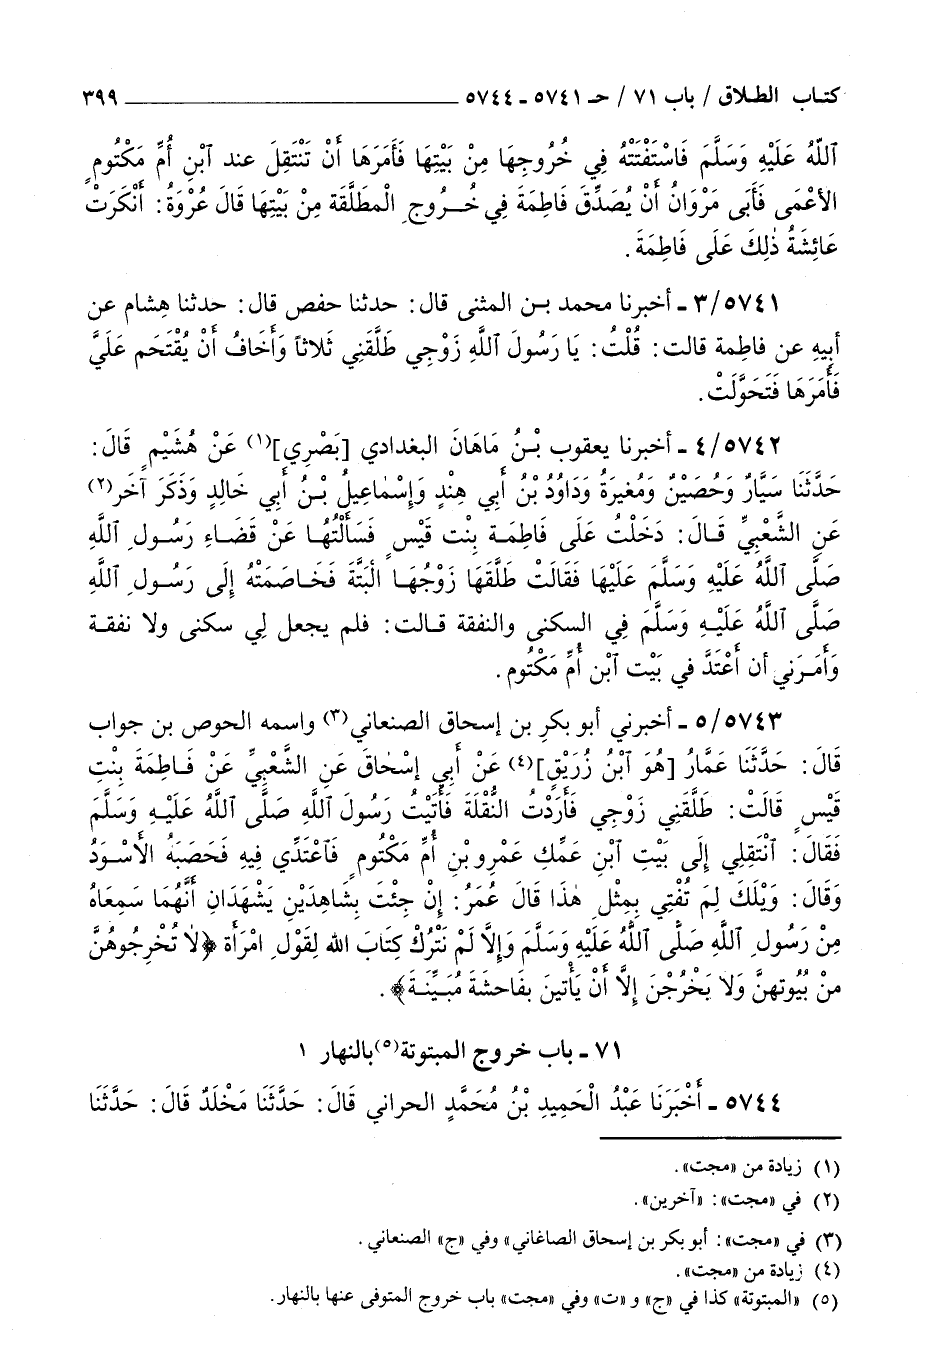 كتاب الطلاق / باب ٧١ / حـ ٥٧٤١ ـ ٥٧٤٤ ٣٩٩
ٱللَّهُ عَلَيْهِ وَسَلَّمَ فَٱسْتَفْتَتْهُ فِي خُرُوجِهَا مِنْ بَيْتِهَا فَأَمَرَهَا أَنْ تَنْتَقِلَ عند ٱبْنِ أُمِّ مَكْتُومٍ
الأَعْمَى فَأَبَى مَرْوَانُ أَنْ يُصَدِّقَ فَاطِمَةَ فِي خُــرُوجِ الْمطَلَّقَة مِنْ بَيْتِهَا قَالَ عُرْوَةُ: أَنْكَرَتْ
عَائِشَةُ ذٰلِكَ عَلَى فَاطِمَةَ.
٣/٥٧٤١ ـ أخبرنا محمد بـن المثنى قال: حدثنا حفص قال: حدثنا هِشام عن
أبيهِ عن فاطِمة قالت: قُلْتُ: يَا رَسُولَ ٱللَّهِ زَوْجِي طَلَّقَنِي ثَلاَثاً وَأَخَافُ أَنْ يُقْتَحَم عَلَيَّ
فَأَمَرَهَا فَتَحَوَّلَتْ.
٤/٥٧٤٢ ـ أخبرنا يعقوب بْـنُ مَاهَانَ البغدادي [بَصْرِي](١) عَنْ هُشَيْمٍ قَالَ:
حَدَّثَنَا سَيَّارُ وَحُصَيْنُ وَمُغِيرَةُ وَدَاوُدُ بْنُ أَبِي هِنْدٍ وَإِسْمَاعِيلُ بْـنُ أَبِي خَالِدٍ وَذَكَرَ آخَر(٢)
عَنِ الشَّعْبِيِّ قَـالَ: دَخَلْتُ عَلَى فَاطِمَة بِنْت قَيْسٍ فَسَأَلْتُهَا عَنْ قَضَـاءِ رَسُـولِ ٱللَّهِ
صَلَّى ٱللَّهُ عَلَيْهِ وَسَلَّمَ عَلَيْهَا فَقَالَتْ طَلَّقَهَا زَوْجُهَـا الْبَتَّةَ فَخَـاصَمَتْهُ إِلَى رَسُـولِ ٱللَّهِ
صَلَّى ٱللَّهُ عَلَيْـهِ وَسَلَّمَ فِي السكنى والنفقة قـالت: فلم يجعل لِي سكنى ولا نفقـة
وَأَمَـرَنِي أن أَعْتَدَّ في بَيْت ٱبْن أُمِّ مَكْتُوم.
٥/٥٧٤٣ ـ أخبرني أبو بكر بن إسحاق الصنعاني(٣) واسمه الحوص بن جواب
قَالَ: حَدَّثَنَا عَمَّارُ [هُوَ ٱبْنُ زُرَيْقٍ](٤) عَنْ أَبِي إِسْحَاقَ عَنِ الشَّعْبِيِّ عَنْ فَـاطِمَةَ بِنْتِ
قَيْسٍ قَالَتْ: طَلَّقَنِي زَوْجِي فَأَرَدْتُ النُّقْلَةَ فَأَتَيْتُ رَسُولَ ٱللَّهِ صَلَّى ٱللَّهُ عَلَيْـهِ وَسَلَّمَ
فَقَالَ: ٱنْتَقِلِي إِلَى بَيْتِ ٱبْنِ عَمِّكِ عَمْرِو بْنِ أُمِّ مَكْتُومٍ فَٱعْتَدِّي فِيهِ فَحَصَبَهُ الأَسْـوَدُ
وَقَالَ: وَيْلَكَ لِمَ تُفْتِي بِمِثْلِ هٰذَا قَالَ عُمَرُ: إِنْ جِئْتَ بِشَاهِدَيْنِ يَشْهَدَانِ أَنَّهُمَا سَمِعَاهُ
مِنْ رَسُولِ ٱللَّهِ صَلَّى ٱللَّهُ عَلَيْهِ وَسَلَّمَ وَإِلاَّ لَمْ نَتْرُكْ كِتَابَ الله لِقَوْلِ امْرَأَة ﴿لاَ تُخْرِجُوهُنَّ
مِنْ بُيُوتِهِنَّ وَلا يَخْرُجْنَ إِلاَّ أَنْ يَأْتِينَ بفَاحشَةَ مُبَـيِّنَـةَ﴾.
٧١ ـ باب خروج المبتوتة(٥) بالنهار ١
٥٧٤٤ ـ أَخْبَرَنَا عَبْدُ الْحَمِيدِ بْنُ مُحَمَّدٍ الحراني قَالَ: حَدَّثَنَا مَخْلَدٌ قَالَ: حَدَّثَنَا
(١) زيادة من «مجت».
(٢) في «مجت»: «آخرين».
(٣) في «مجت»: أبو بكر بن إسحاق الصاغاني» وفي «ج» الصنعاني.
(٤) زيادة من «مجت».
(٥) «المبتوتة» كذا في «ج» و «ت» وفي «مجت» باب خروج المتوفى عنها بالنهار.